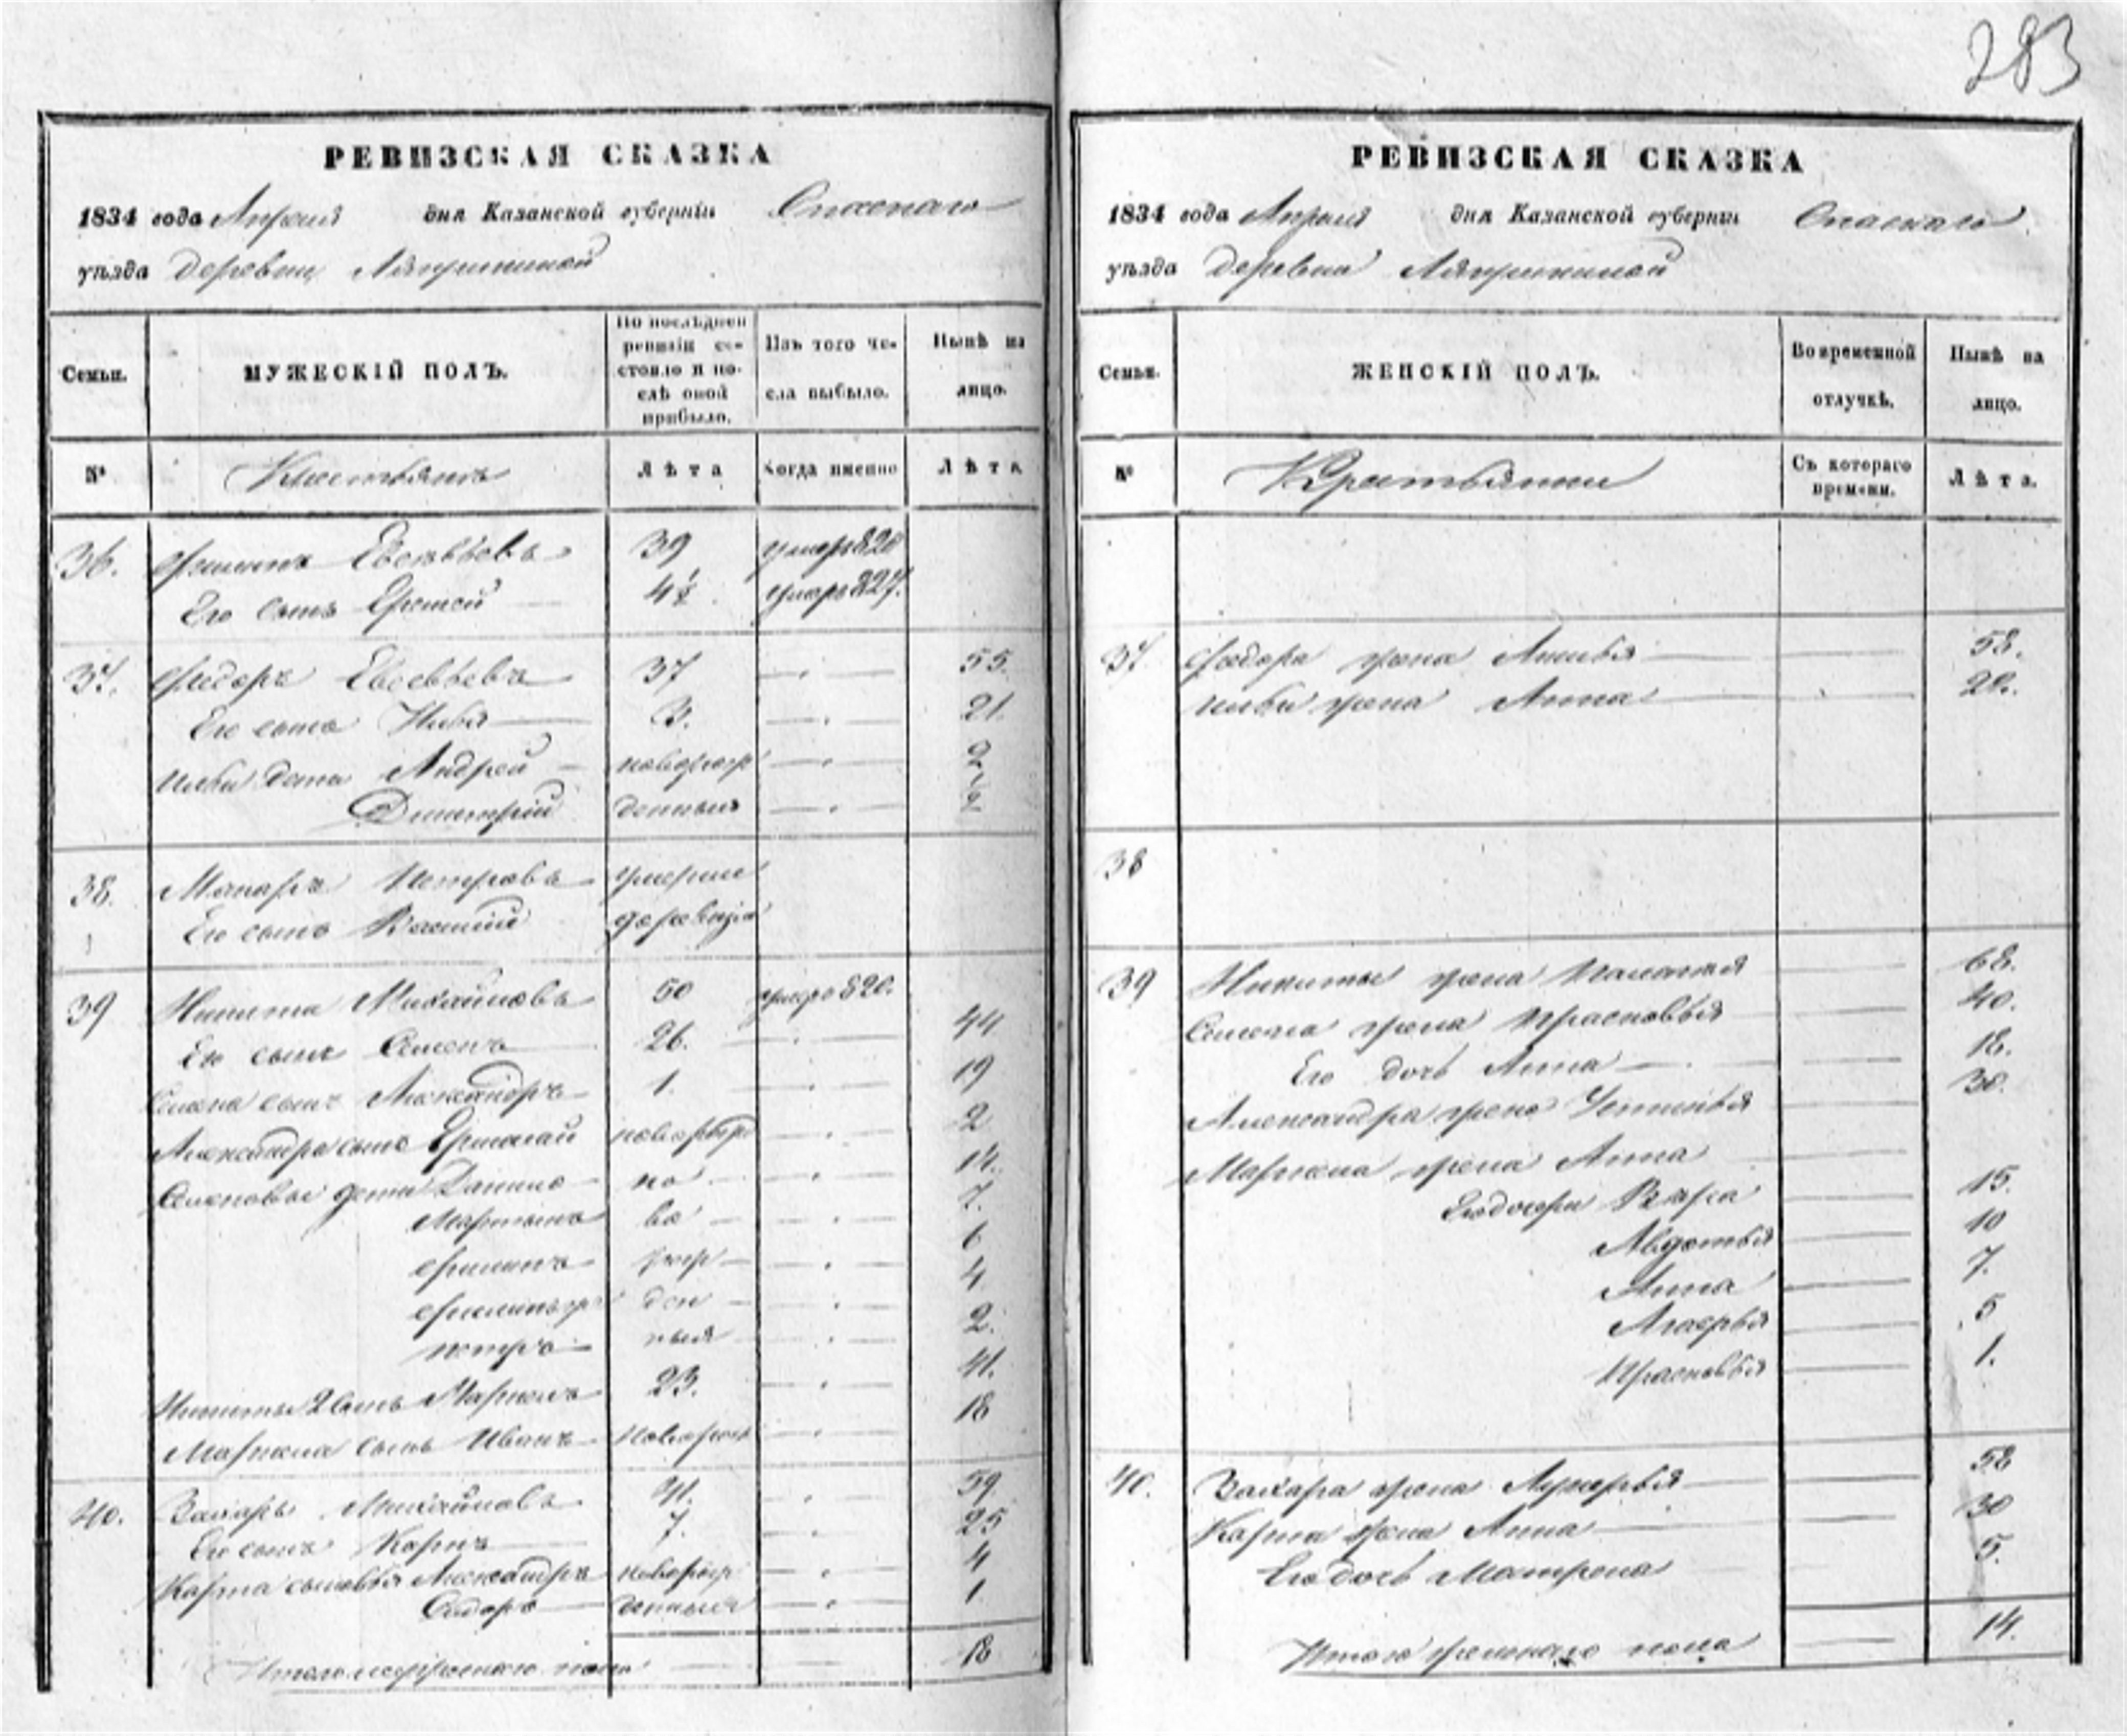 283
РЕВИЗСКАЯ СКАЗКА
1834 года Апреля дня Казанской губернiи Спасскаго
уѣзда деревни
Семьи. МУЖЕСКІЙ ПОЛЪ. По послѣдней ревизіи состояло и послѣ оной прибыло. Изъ того числа выбыло. Нынѣ на лицо.
№ Крестьянъ Лѣта Когда именно Лѣта
36. Филипъ Евсевьевъ 39 умеръ
Его сынъ 4½ умеръ 827.
37. Федоръ Евсевьевъ 37 — 55.
Его сынъ Илья 3. — 21.
Ильи дети Андрей новорож — 2
Дмитрій денныя — ½
38. Макаръ Петровъ умерши
Его сынъ Василій
39 Никита Михайловъ 50 умеръ 820.
Его сынъ Семенъ 26. — 44
Семена сынъ Александръ 1. — 19
Александра сынъ Ермолай новорож — 2
Семеновы дети Данило но — 14.
Мартынъ во — 7.
Филипъ рож — 6
ден — 4
Петръ ныя — 2.
Никиты 2 сынъ Маркелъ 23. — 41.
Маркела сынъ Иванъ новорож — 18
40. Захаръ Михайловъ 41. — 59.
Его сынъ Карпъ 7. — 25
Карпа сыновья Александръ новорож — 4
Сидоръ денныя — 1
Итого мужеска пола — — 18
РЕВИЗСКАЯ СКАЗКА
1834 года Апреля дня Казанской губернiи Спаскаго
уѣзда деревни
Семьи. ЖЕНСКІЙ ПОЛЪ. Во временной отлучкѣ. Нынѣ на лицо.
№ Крестьянки Съ котораго времени. Лѣта.
37. Федора жена — 58.
Ильи жена Анна — 20.
38
39 Никиты жена Палагея — 68.
Семена жена Прасковья — 40.
Его дочь Анна — 18.
Александра жена Устинья — 30.
Маркела жена Анна —
Его дочери — 15.
Авдотья — 10
Анна — 7.
— 5
Прасковья — 1.
40. Захара жена Лукерья — 58
Карпа жена Анна — 30
Его дочь Матрена 5.
Итого женскаго пола — 14.